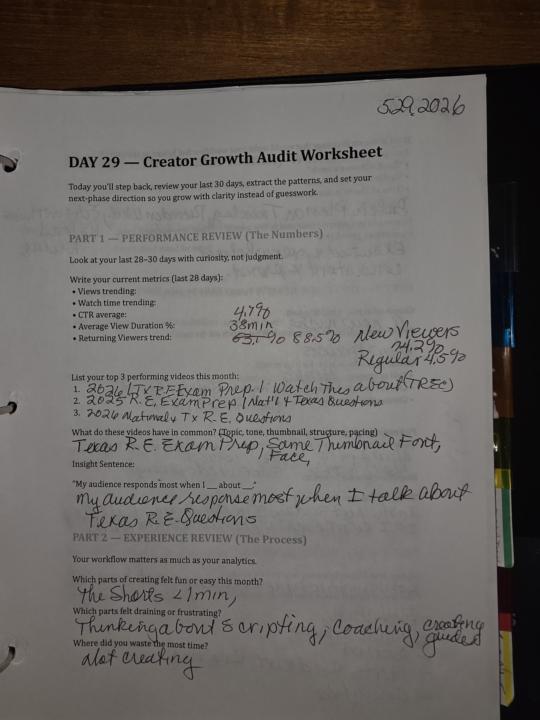 5.29.2026
DAY 29 — Creator Growth Audit Worksheet
Today you'll step back, review your last 30 days, extract the patterns, and set your
next-phase direction so you grow with clarity instead of guesswork.
PART 1 — PERFORMANCE REVIEW (The Numbers)
Look at your last 28–30 days with curiosity, not judgment.
Write your current metrics (last 28 days):
• Views trending:
• Watch time trending:
• CTR average: 4.7%
• Average View Duration %: 38min
• Returning Viewers trend: 63.1% 88.5% New Viewers
24.2%
Regular 4.5%
List your top 3 performing videos this month:
1. 2026 | TX R.E Exam Prep | Watch This about (TREC)
2. 2025 R.E, Exam Prep | Nat'l & Texas Questions
3. 2026 National & Tx R.E. Questions
What do these videos have in common? (Topic, tone, thumbnail, structure, pacing)
Texas R.E. Exam Prep, Same Thumbnail Font,
Face,
Insight Sentence:
"My audience responds most when I __ about __."
My audience response most when I talk about
Texas R.E. Questions
PART 2 — EXPERIENCE REVIEW (The Process)
Your workflow matters as much as your analytics.
Which parts of creating felt fun or easy this month?
The Shorts <1min,
Which parts felt draining or frustrating?
Thinking about scripting, coaching, creating
guides
Where did you waste the most time?
Not creating